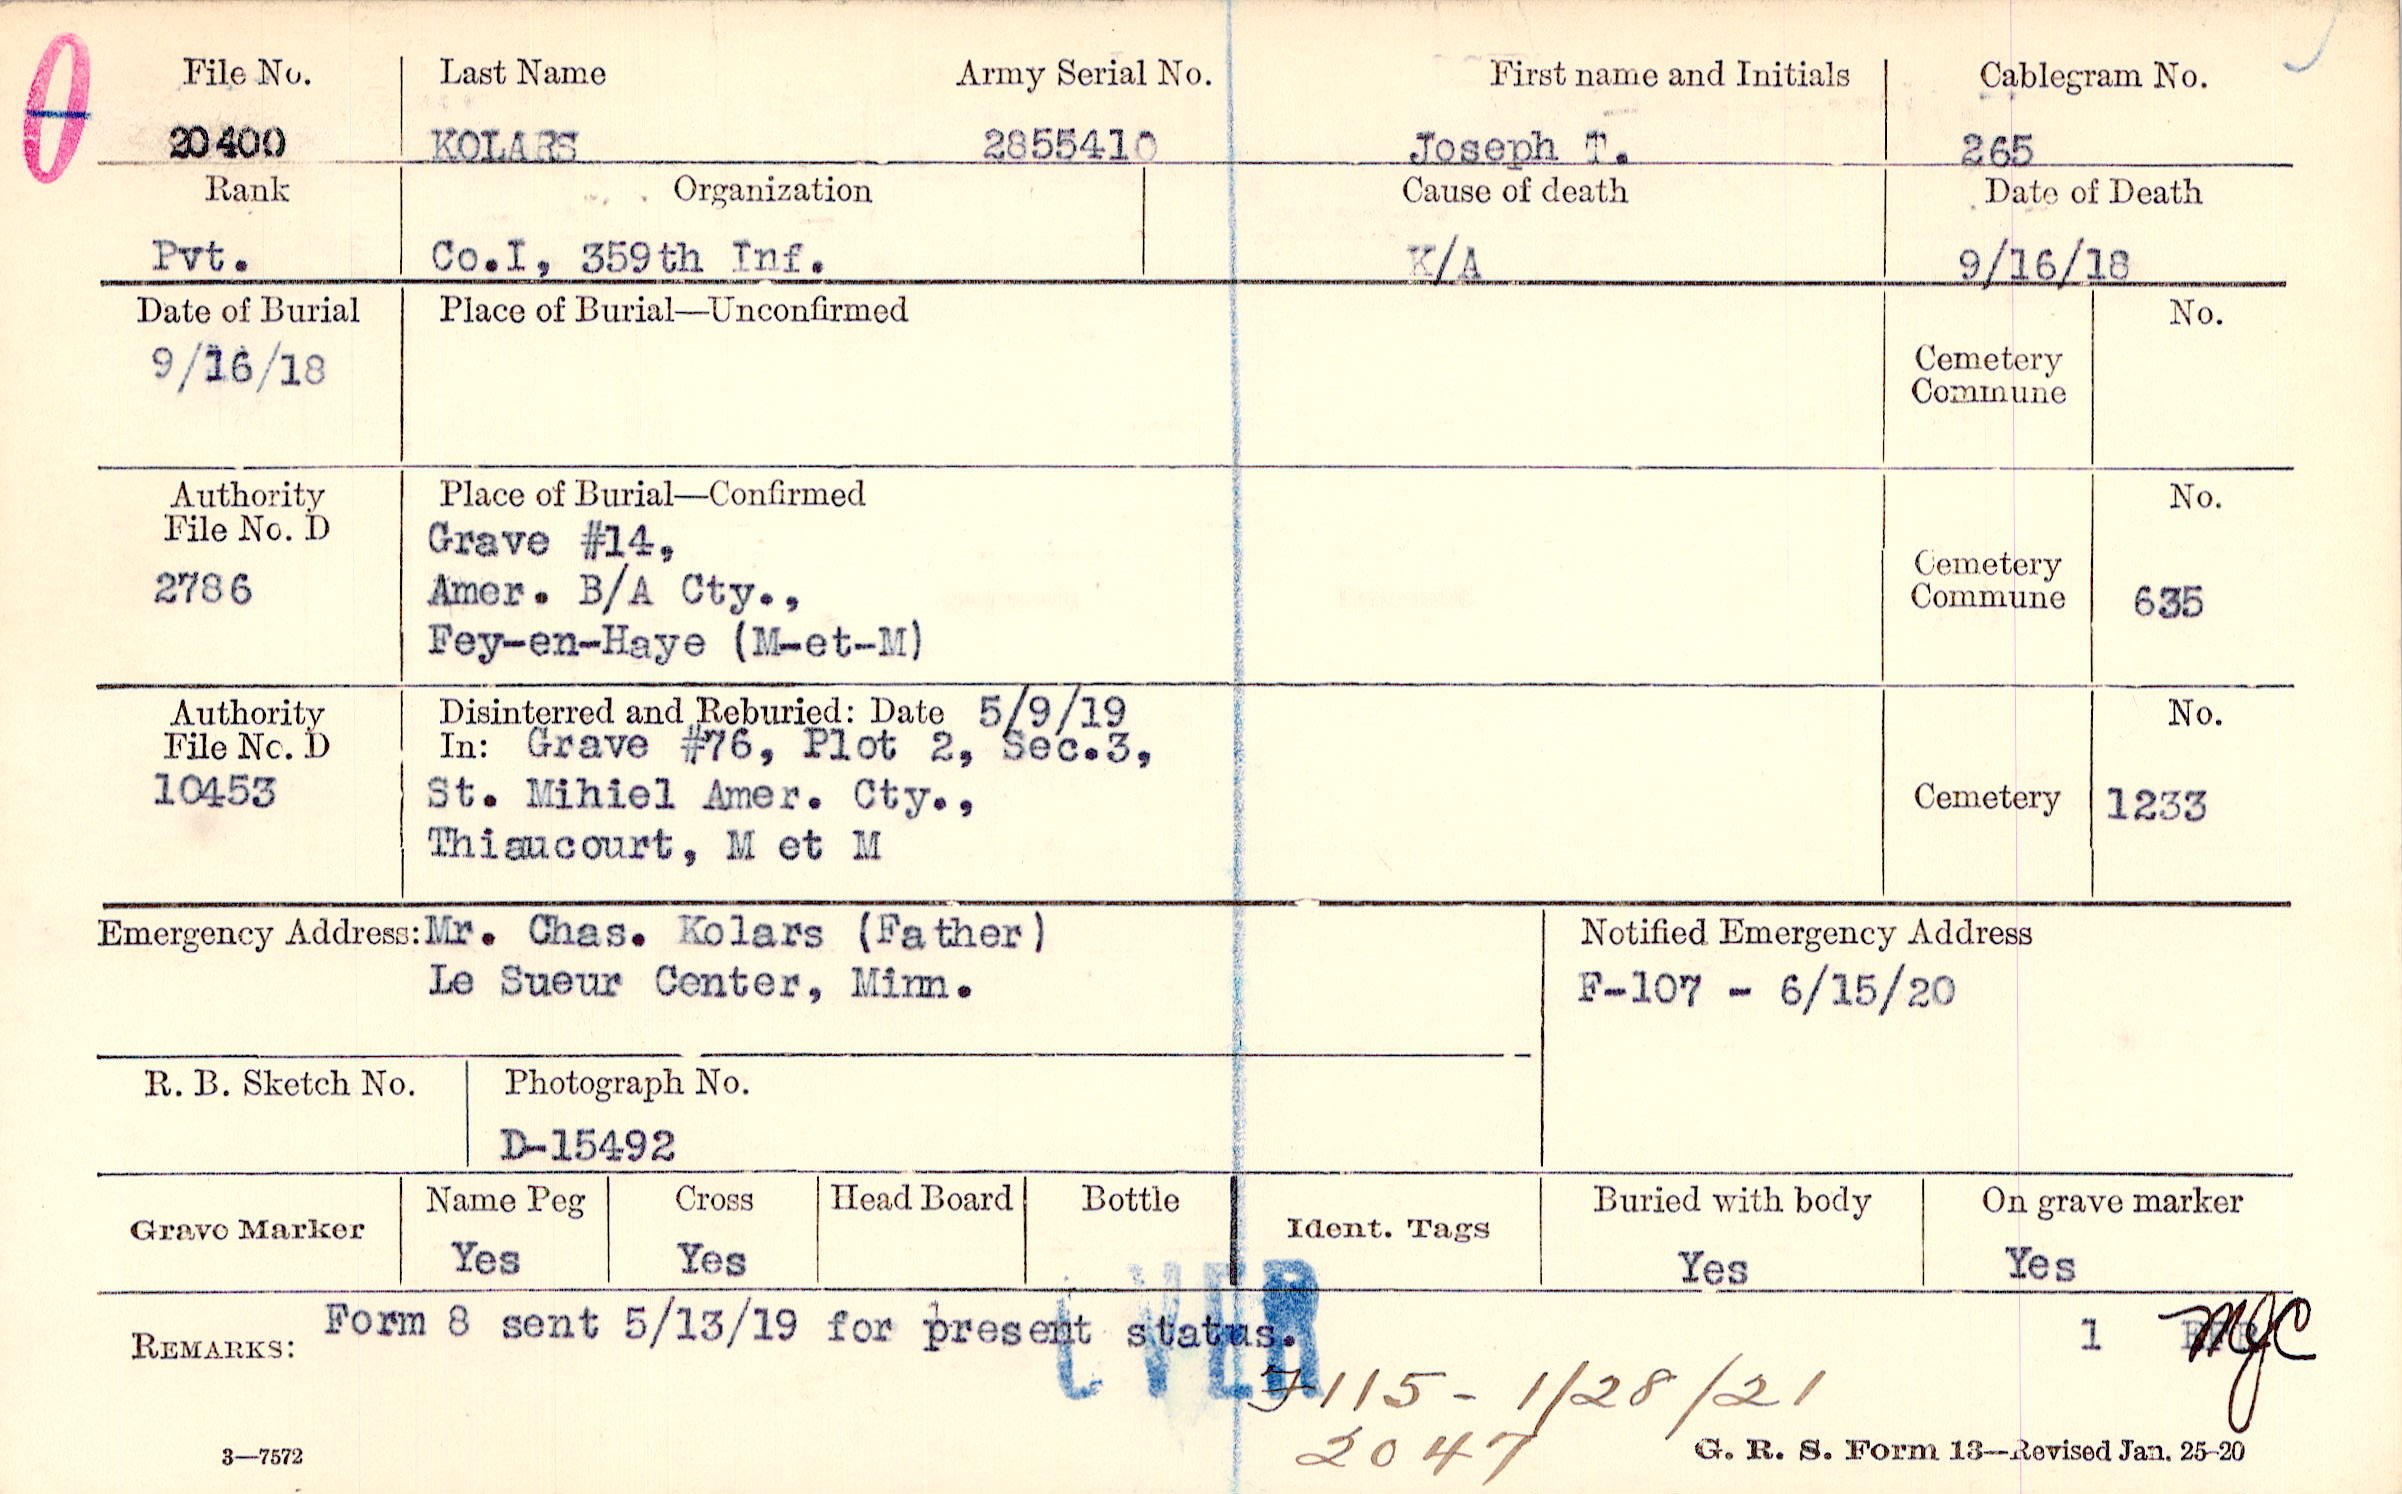 File No. Last Name Army Serial No. First name and Initials Cablegram No.
20400 KOLARS 2855410 Joseph T. 265
Rank Organization Cause of death Date of Death
Pvt. Co.I, 359th Inf. K/A 9/16/18
Date of Burial Place of Burial—Unconfirmed No.
9/16/18
Cemetery
Commune
Authority Place of Burial—Confirmed No.
File No. D
Grave #14,
2786 Amer. B/A Cty.,
Cemetery
Commune 635
Fey-en-Haye (M-et-M)
Authority Disinterred and Reburied: Date 5/9/19 No.
File No. D In: Grave #76, Plot 2, Sec.3,
10453 St. Mihiel Amer. Cty., Cemetery 1233
Thiaucourt, M et M
Emergency Address: Mr. Chas. Kolars (Father) Notified Emergency Address
Le Sueur Center, Minn. F-107 - 6/15/20
R. B. Sketch No. Photograph No.
D-15492
Grave Marker Name Peg Cross Head Board Bottle Ident. Tags Buried with body On grave marker
Yes Yes Yes Yes
REMARKS: Form 8 sent 5/13/19 for present status. 1 MJC
OVER
7115 - 1/28/21
2047
3—7572 G. R. S. Form 13—Revised Jan. 25-20